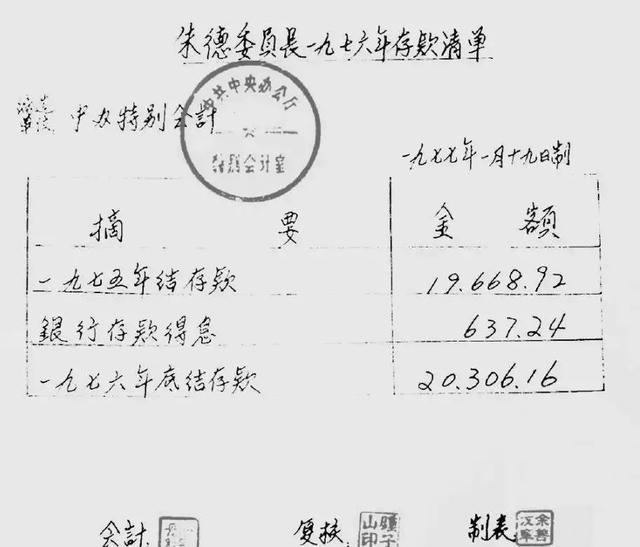 朱德委員長一九七六年存款清单
中办特别会計
中共中央办公厅
特别会计室
一九七七年一月十九日制
摘 要 金 額
一九七五年结存款 19.668.92
銀行存款得息 637.24
一九七六年底结存款 20.306.16
会計 复核 制表